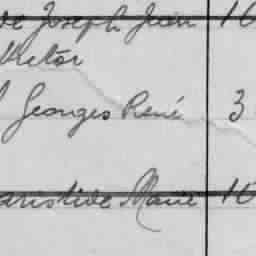 Joseph Jean 16
Victor
Georges René 3
Aristide Marie 10